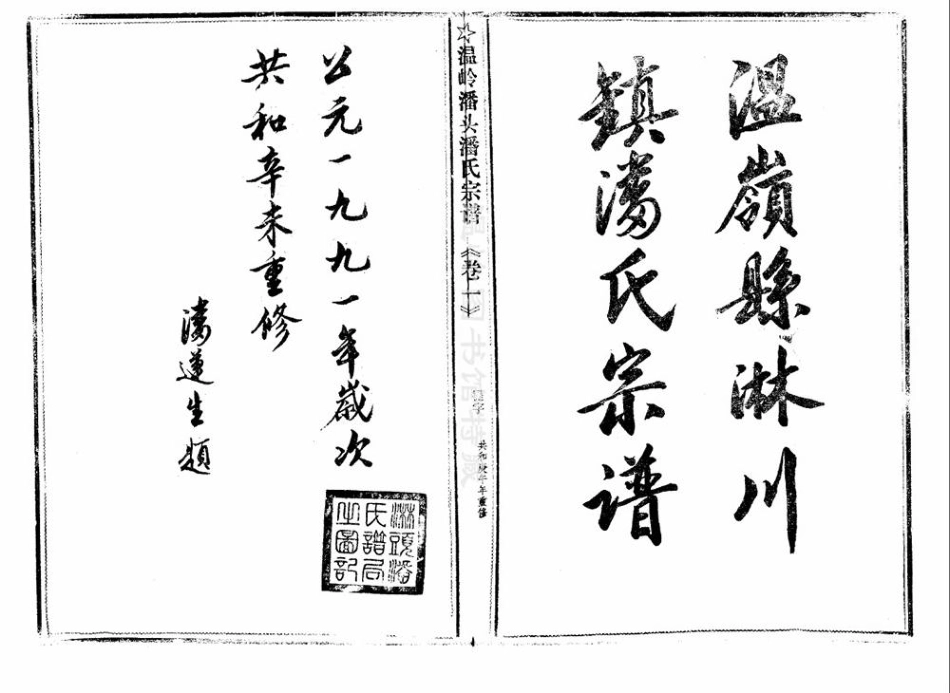 溫嶺縣淋川
鎮潘氏宗谱
☆温岭潘头潘氏宗谱《卷一》
共和庚午年重修
公元一九九一年歲次
共和辛未重修
潘蓮生題
淋頭潘
氏譜局
之圖記
书馆特藏